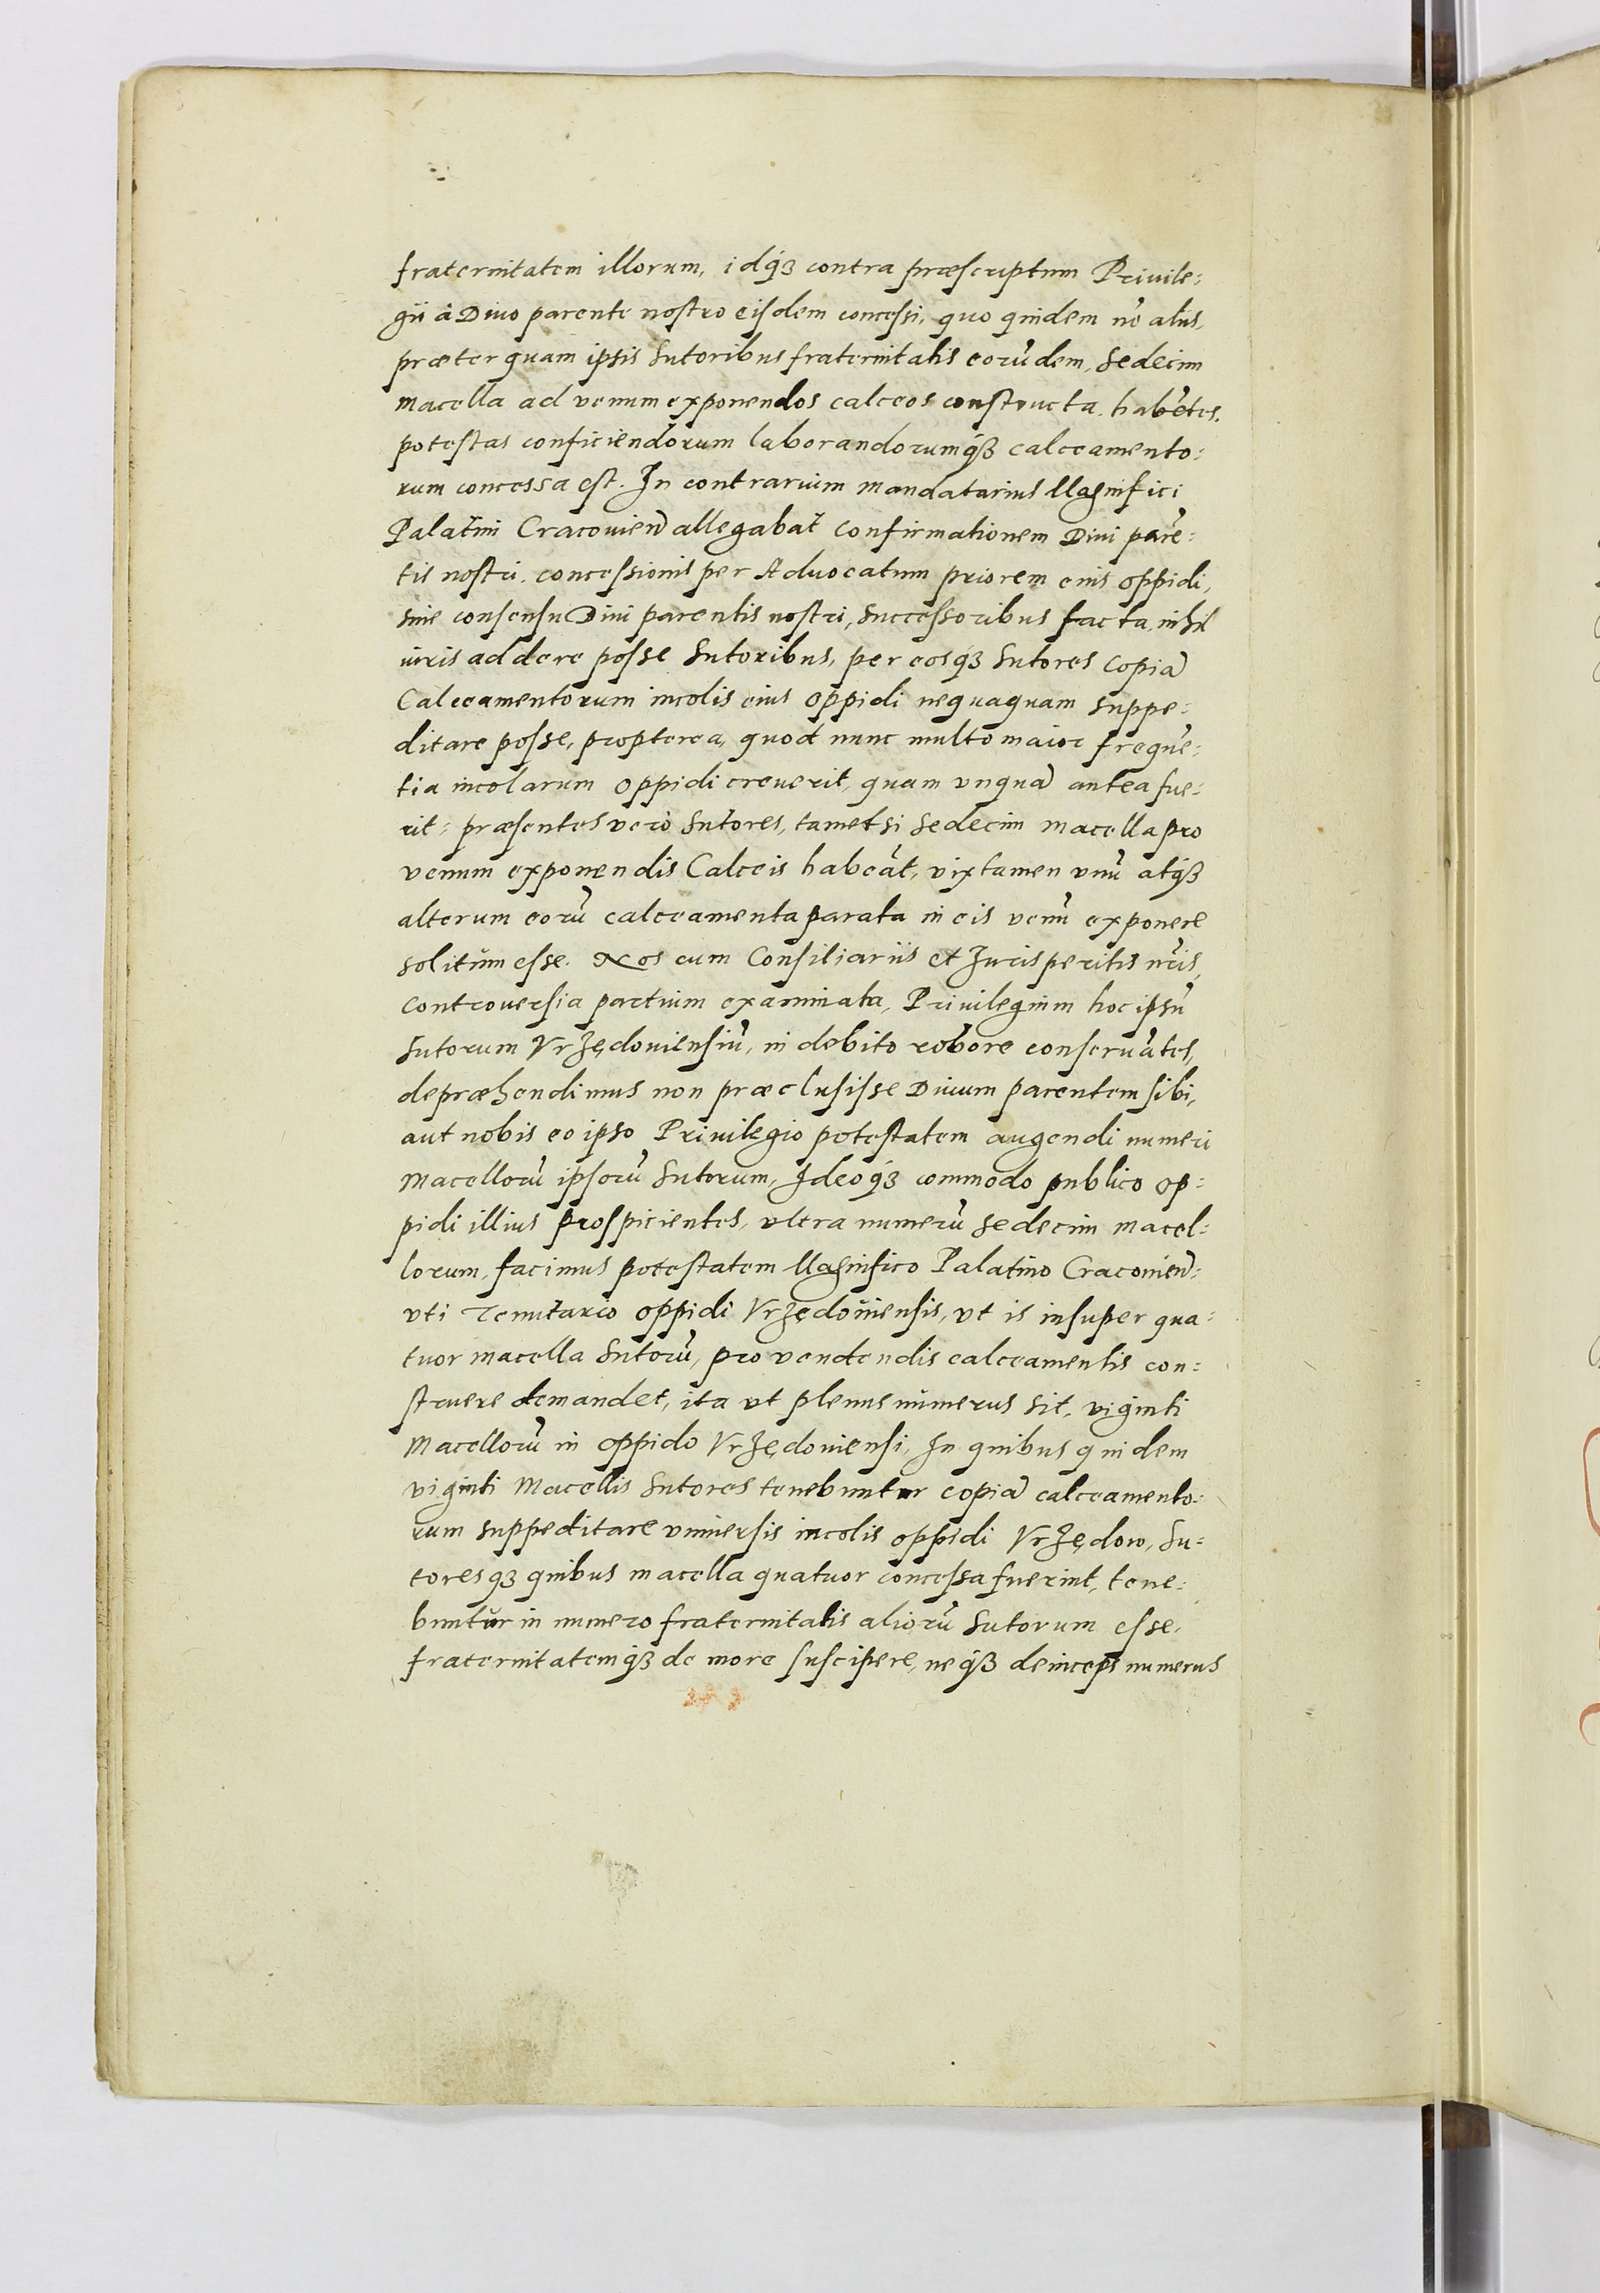 fraternitatem illorum, idq́ꝫ contra præscriptum Priuile=
gii à Diuo parente nostro eisdem concessi, quo quidem nō aliis,
præterquam ipsis Sutoribus fraternitatis eorūdem, sedecim
macella ad venum exponendos calceos constructa habētes,
potestas conficiendorum laborandorumq́ꝫ calceamento=
rum concessa est. In contrarium mandatarius Magnifici
Palatini Cracovien̄ allegabat confirmationem Diui parē=
tis nostri, concessionis per Aduocatum priorem eius oppidi,
sine consensu Diui parentis nostri, successoribus facta, nihil
iuris addere posse Sutoribus, per eosq́ꝫ Sutores copiā
Calceamentorum incolis eius oppidi nequaquam suppe=
ditare posse, propterea, quod nunc multo maior frequē=
tia incolarum oppidi creuerit, quam vnquā antea fue=
rit: præsentes verò Sutores, tametsi sedecim macella pro
venum exponendis Calceis habeāt, vix tamen vnū atq́ꝫ
alterum eorū calceamenta parata in eis venū exponere
solitum esse. Nos cum Consiliariis et Jurisperitis nr̄is,
controuersia partium examinata, Priuilegium hoc ipsū
Sutorum Vrzędouiensiū, in debito robore conseruātes,
depræhendimus non præclusisse Diuum parentem sibi,
aut nobis eo ipso Priuilegio potestatem augendi numeri
macellorū ipsorū Sutorum, Ideoq́ꝫ commodo publico op=
pidi illius prospicientes, vltra numerū sedecim macel=
lorum, facimus potestatem Magnifico Palatino Cracouien̄
vti Tenutario oppidi Vrzędouiensis, vt is insuper qua=
tuor macella Sutorū, pro vendendis calceamentis con=
struere demandet, ita vt plenus numerus sit, viginti
Macellorū in oppido Vrzędouiensi, In quibus quidem
viginti Macellis Sutores tenebuntur copiā calceamento=
rum suppeditare vniuersis incolis oppidi Vrzędow, Su=
toresq́ꝫ quibus macella quatuor concessa fuerint, tene=
buntur in numero fraternitatis aliorū Sutorum esse,
fraternitatemq́ꝫ de more suscipere, neq́ꝫ deinceps numerus